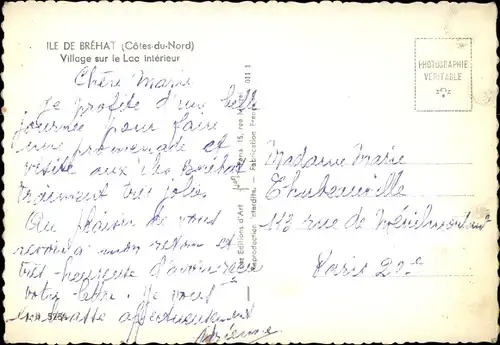 ILE DE BRÉHAT (Côtes-du-Nord)
Village sur le Lac intérieur
Chère Marie
je profite d'une belle
journée pour faire
une promenade et
visite aux îles Bréhat
vraiment très jolies
Au plaisir de vous
revoir à mon retour et
très heureuse d'avoir reçu
votre lettre. Je vous
embrasse affectueusement
Adrienne
Les Editions d'Art
Paris 15, rue
011 1
Reproduction Interdite - Fabrication Française
PHOTOGRAPHIE
VÉRITABLE
Madame Marie
112 rue de Ménilmontant
Paris 20e